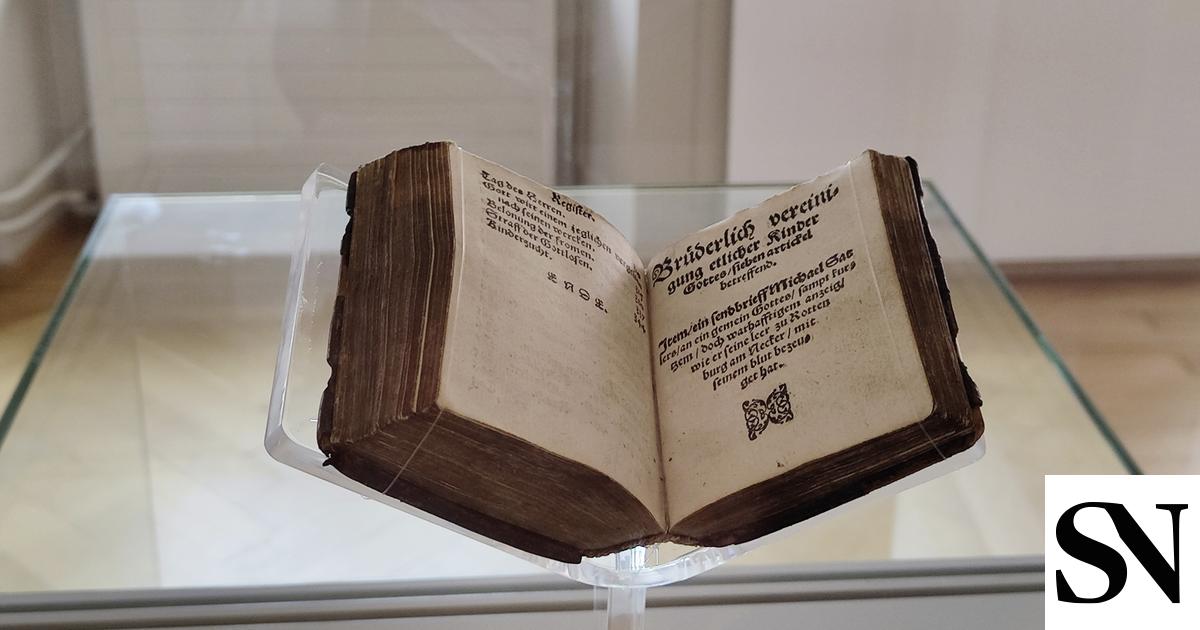 Register.
Tag des Herren.
Gott wirt einem jeglichen
nach seinen wercken.
Belonung der fromen.
Straff der Gottlosen.
Kindersucht.
ENDE.
Brüderlich vereini⸗
gung etlicher Kinder
Gottes/ sieben artickel
betreffend.
Item/ ein sendbrieff Michael Sat
lers/ an ein gemein Gottes/ sampt kur⸗
tzem/ doch warhafftigem anzeig/
wie er seine leer zu Rotten
burg am Necker/ mit
seinem blut bezeu⸗
get hat.
SN